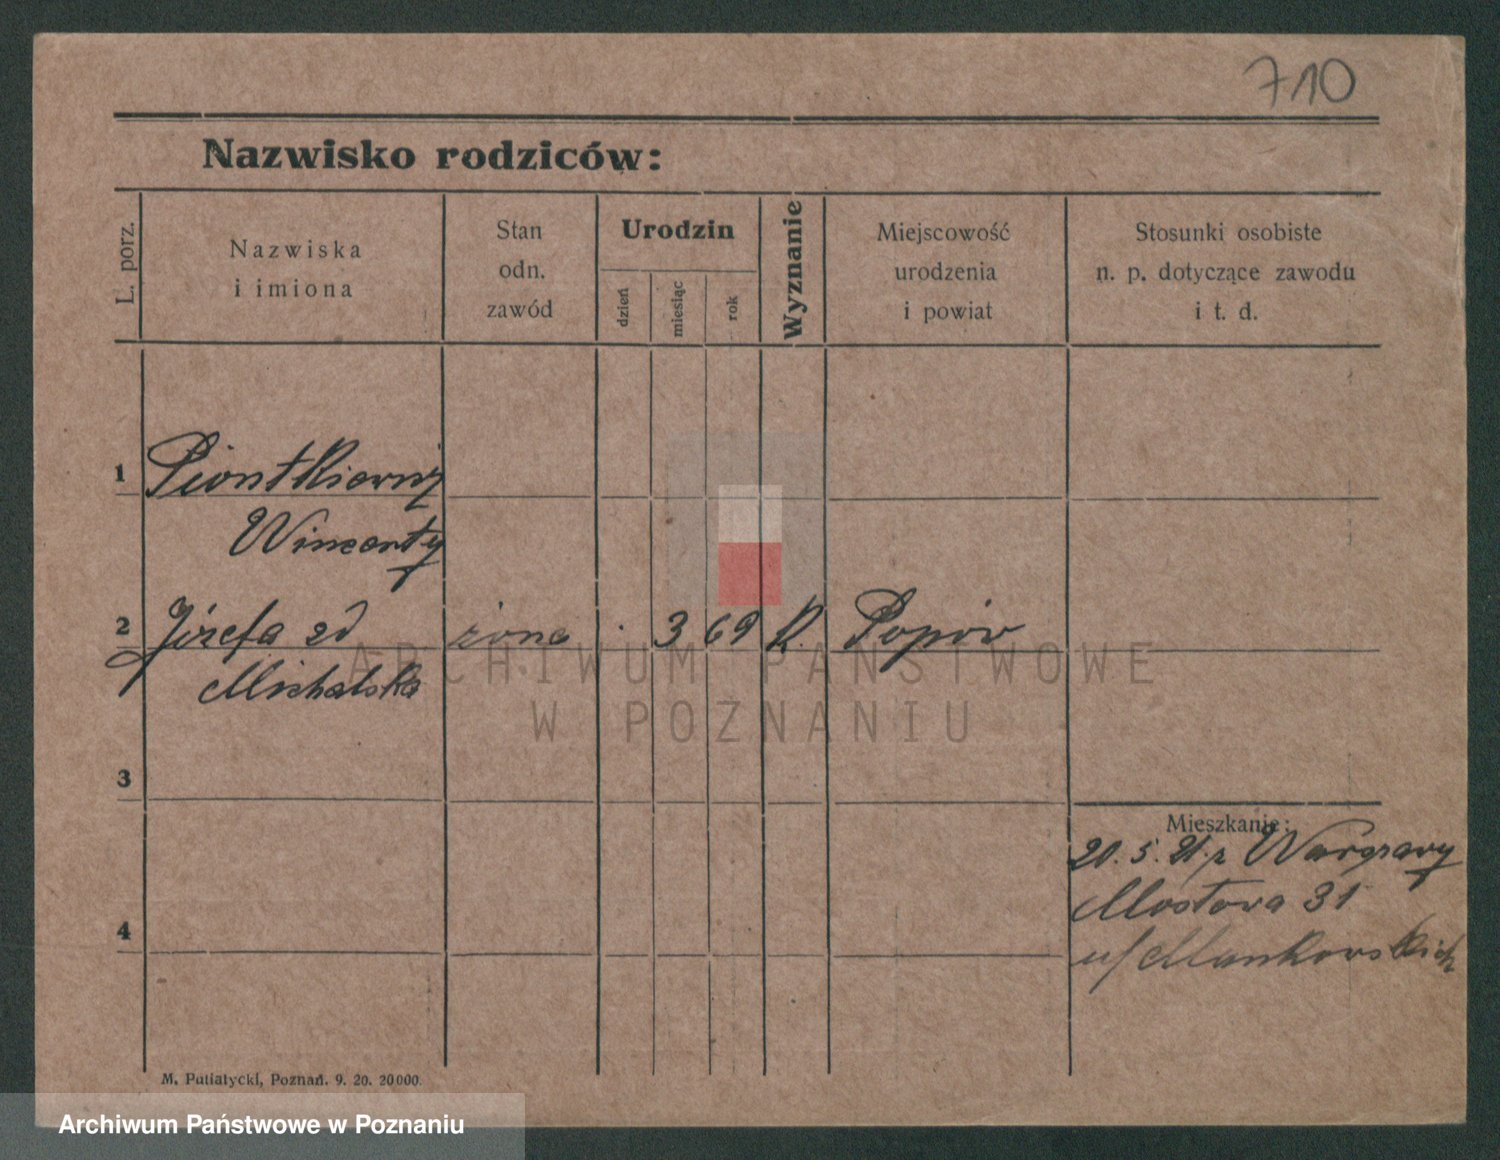 710
Nazwisko rodziców:
L. porz.
Nazwiska
i imiona
Stan
odn.
zawód
Urodzin
dzień
miesiąc
rok
Wyznanie
Miejscowość
urodzenia
i powiat
Stosunki osobiste
n. p. dotyczące zawodu
i t. d.
1
Wincenty
2 Józefa zd żona 3 69 R. Popów
Michalska
3
4
Mieszkanie:
20. 5. 21. z
Mostowa 31
u/Mankowskich
M. Putiatycki, Poznań. 9. 20. 20000.
ARCHIWUM PAŃSTWOWE
W POZNANIU
Archiwum Państwowe w Poznaniu